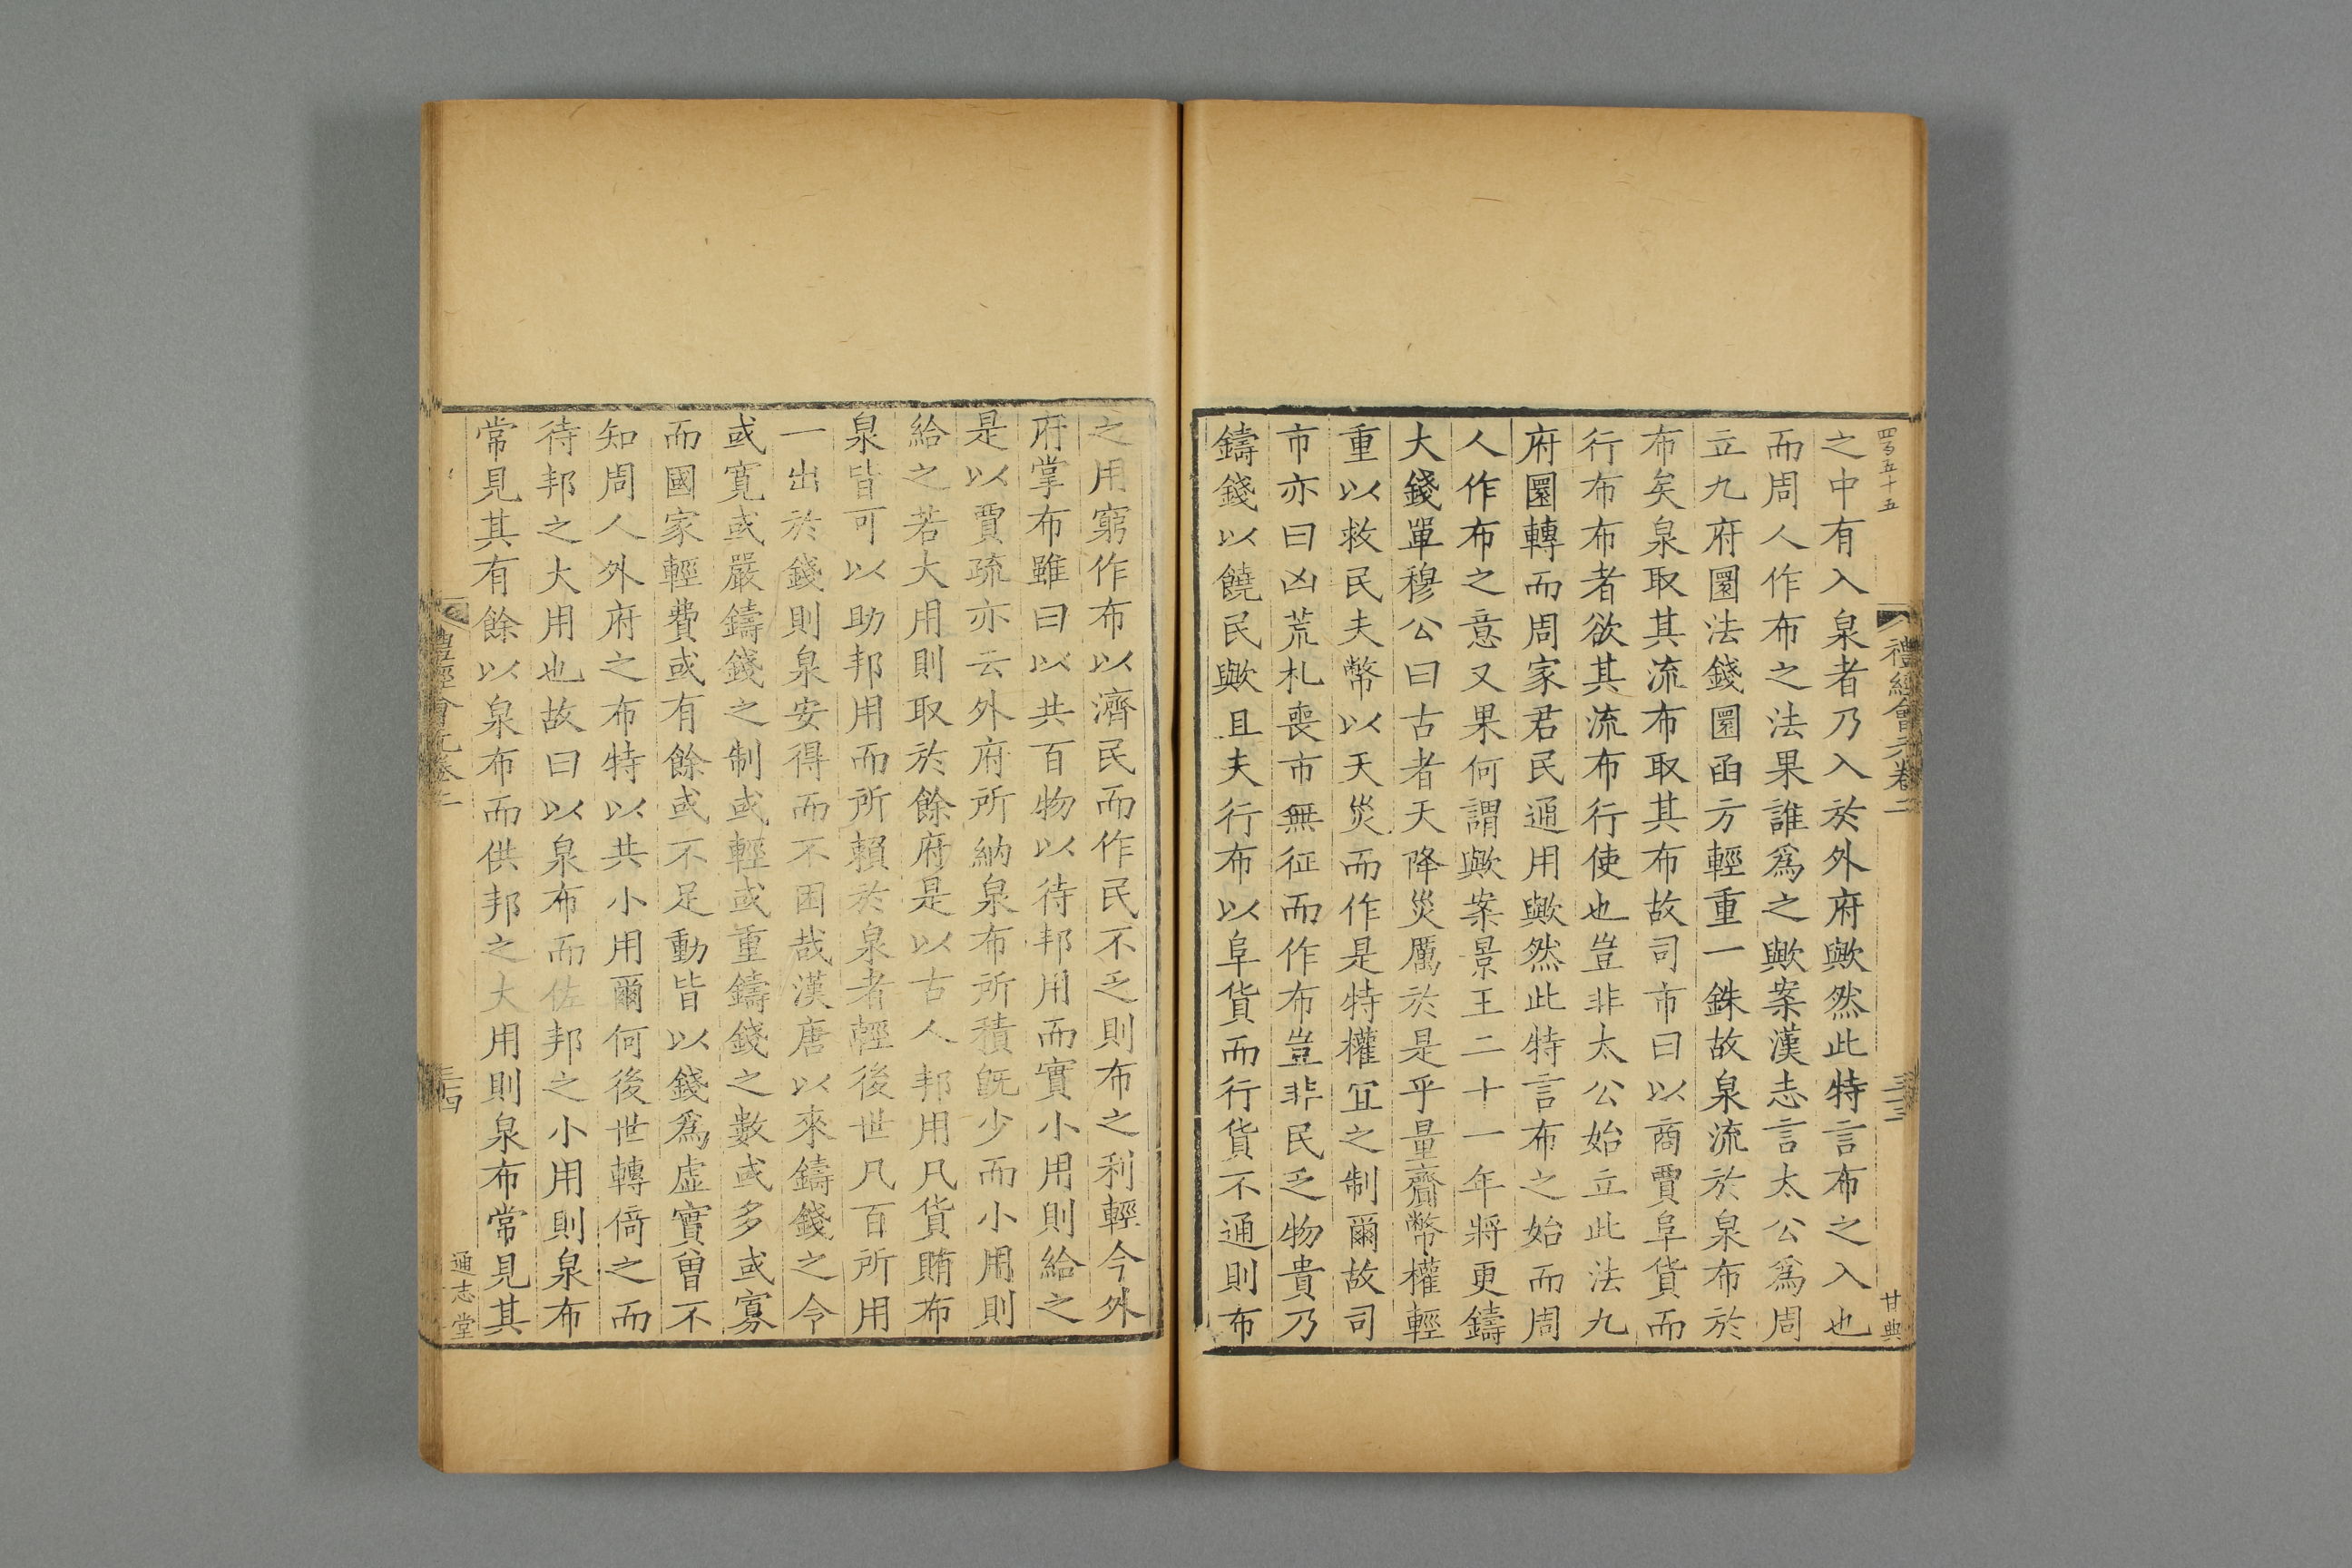 四百五十五
禮經會元卷二
三十三
甘典
之中有入泉者乃入於外府歟然此特言布之入也
而周人作布之法果誰爲之歟案漢志言太公爲周
立九府圜法錢圜函方輕重一銖故泉流於泉布於
布矣泉取其流布取其布故司市曰以商賈阜貨而
行布布者欲其流布行使也豈非太公始立此法九
府圜轉而周家君民通用歟然此特言布之始而周
人作布之意又果何謂歟案景王二十一年將更鑄
大錢單穆公曰古者天降災厲於是乎量齎幣權輕
重以救民夫幣以天災而作是特權冝之制爾故司
市亦曰凶荒札喪市無征而作布豈非民乏物貴乃
鑄錢以饒民歟且夫行布以阜貨而行貨不通則布
之用窮作布以濟民而作民不乏則布之利輕今外
府掌布雖曰以共百物以待邦用而實小用則給之
是以賈疏亦云外府所納泉布所積旣少而小用則
給之若大用則取於餘府是以古人邦用凡貨賄布
泉皆可以助邦用而所賴於泉者輕後世凡百所用
一出於錢則泉安得而不困哉漢唐以來鑄錢之令
或寬或嚴鑄錢之制或輕或重鑄錢之數或多或寡
而國家輕費或有餘或不足動皆以錢爲虛實曾不
知周人外府之布特以共小用爾何後世轉倚之而
待邦之大用也故曰以泉布而佐邦之小用則泉布
常見其有餘以泉布而供邦之大用則泉布常見其
禮經會元卷二
三十四
通志堂